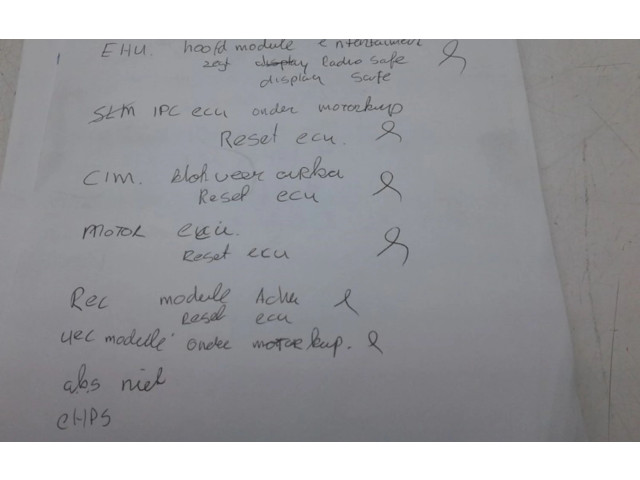 EHU. hoofd module entertainment
zet display Radio safe
display safe
SLM IPC ecu onder motorkup
Reset ecu.
CIM. klokveer airba
Reset ecu
MOTOR ecu.
Reset ecu
Rec module Achter
Reset ecu
uec module onder motorkup.
abs niet
EHPS